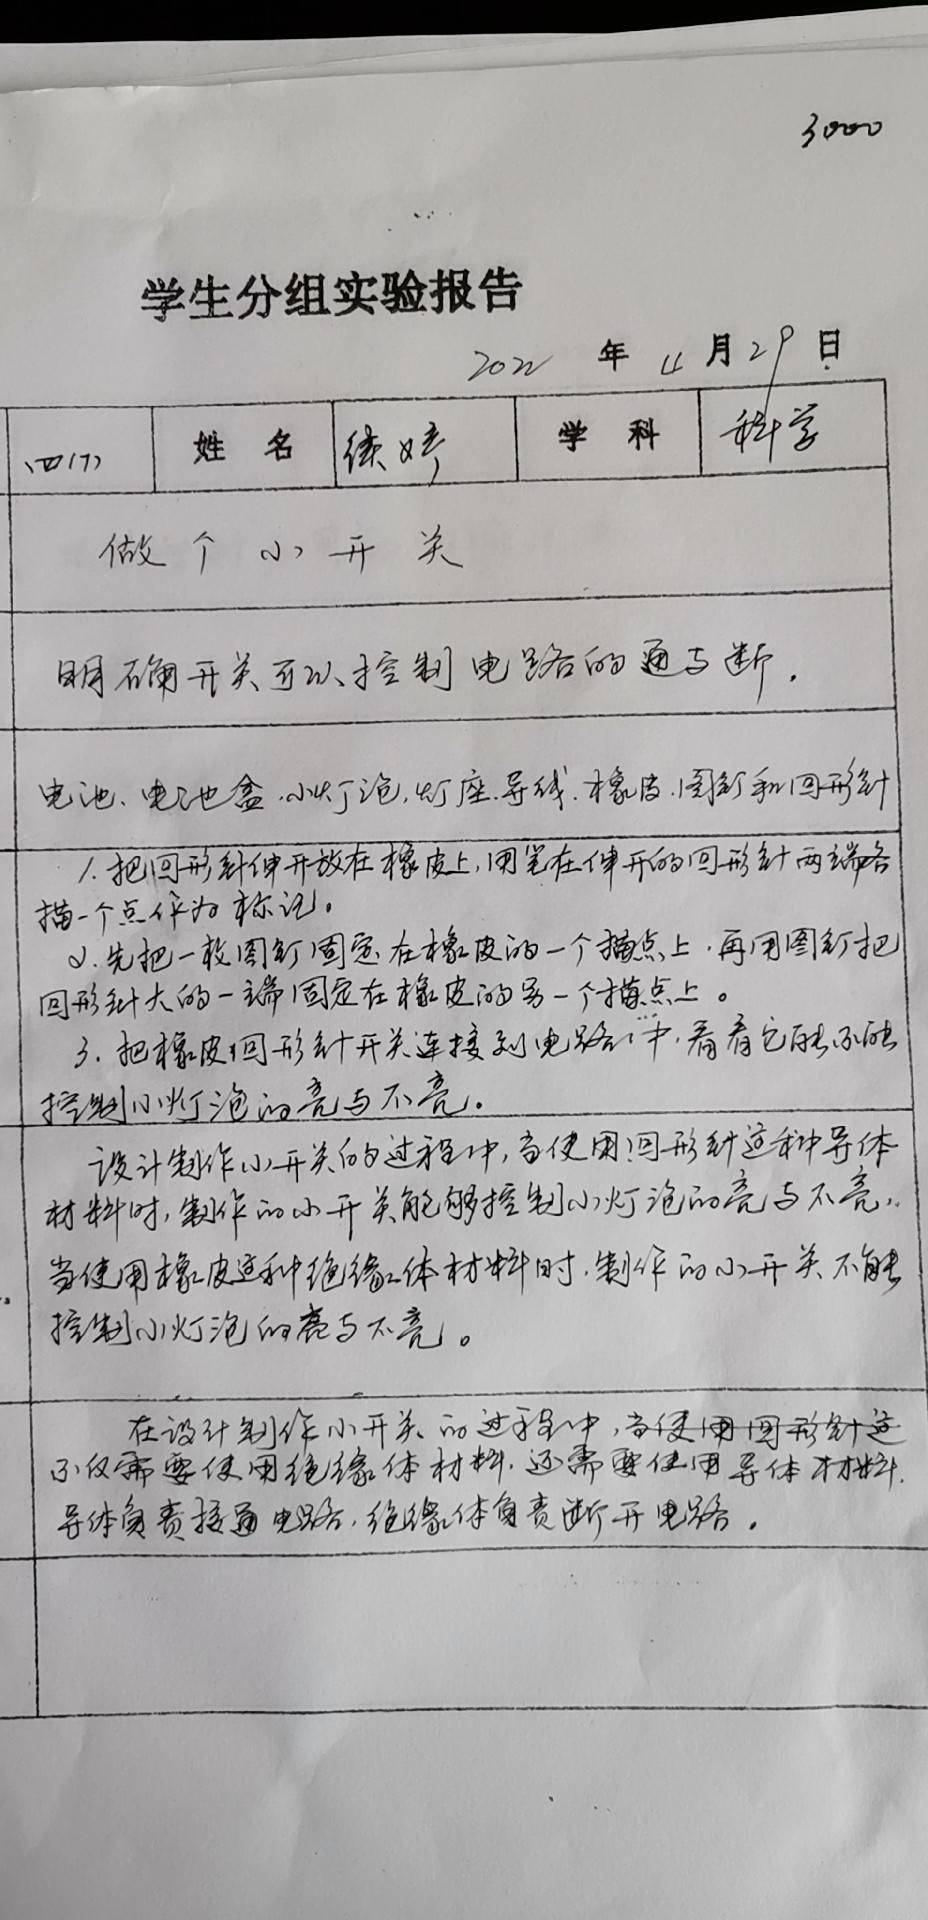 3000
学生分组实验报告
2022 年 4 月 29 日
四(7) 姓 名 续婷 学 科 科学
做个小开关
明确开关可以控制电路的通与断.
电池、电池盒、小灯泡、灯座、导线、橡皮、图钉和回形针
1.把回形针伸开放在橡皮上,用笔在伸开的回形针两端各
描一个点作为标记。
2.先把一枚图钉固定在橡皮的一个描点上,再用图钉把
回形针大的一端固定在橡皮的另一个描点上。
3.把橡皮回形针开关连接到电路中,看看它能不能
控制小灯泡的亮与不亮。
设计制作小开关的过程中,当使用回形针这种导体
材料时,制作的小开关能够控制小灯泡的亮与不亮,
当使用橡皮这种绝缘体材料时,制作的小开关不能
控制小灯泡的亮与不亮。
在设计制作小开关的过程中,当使用回形针这
不仅需要使用绝缘体材料,还需要使用导体材料.
导体负责接通电路,绝缘体负责断开电路.